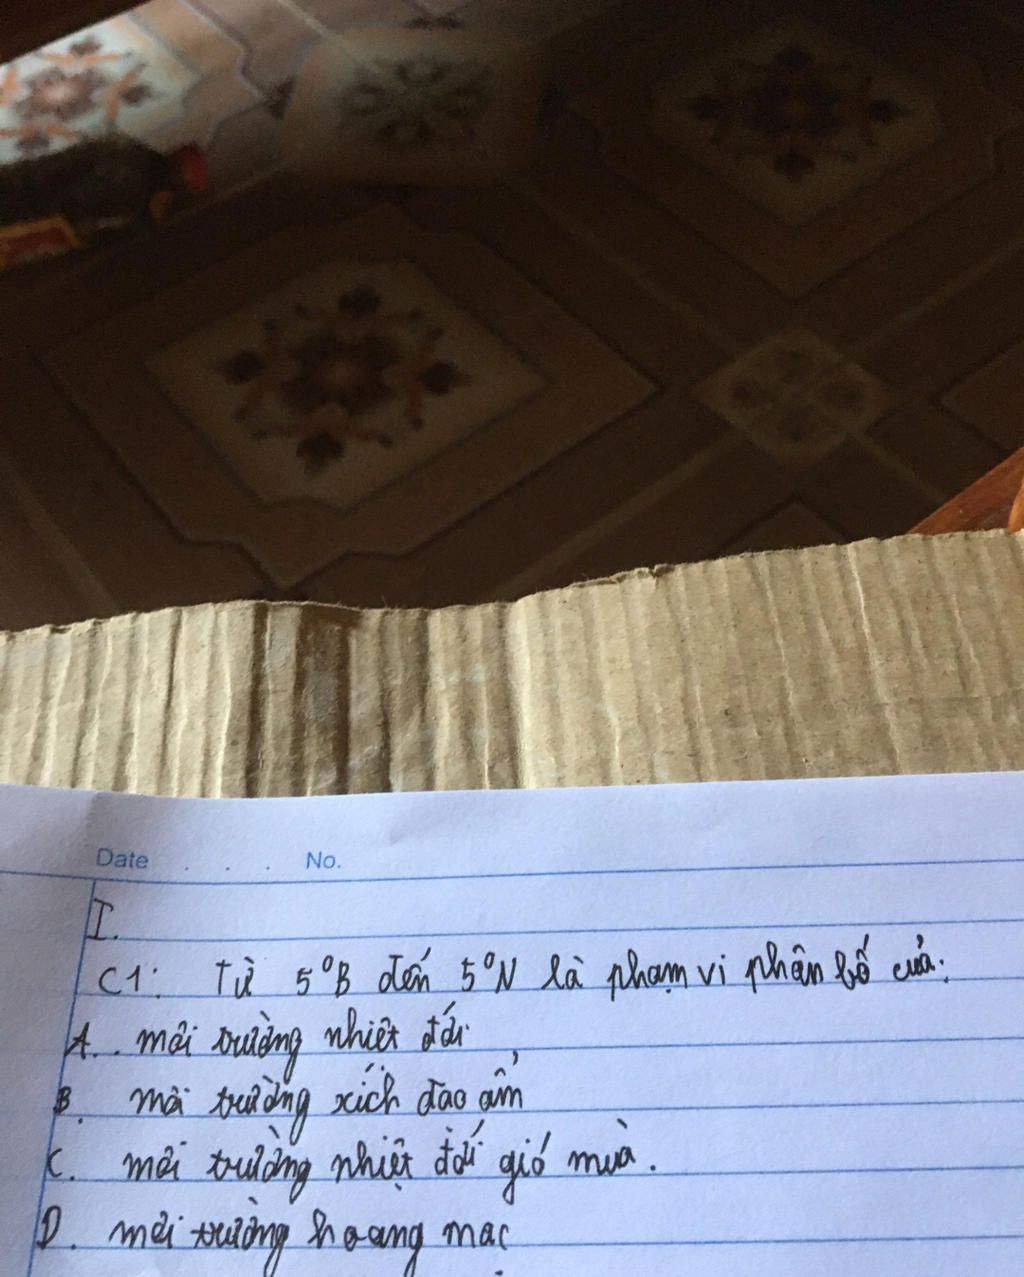 Date . . . . No.
I.
C1: Từ 5°B đến 5°N là phạm vi phân bố của:
A. môi trường nhiệt đới
B. môi trường xích đạo ẩm
C. môi trường nhiệt đới gió mùa.
D. môi trường hoang mạc